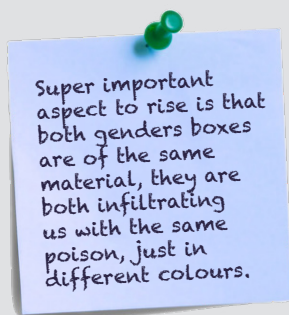 Super important
aspect to rise is that
both genders boxes
are of the same
material, they are
both infiltrating
us with the same
poison, just in
different colours.